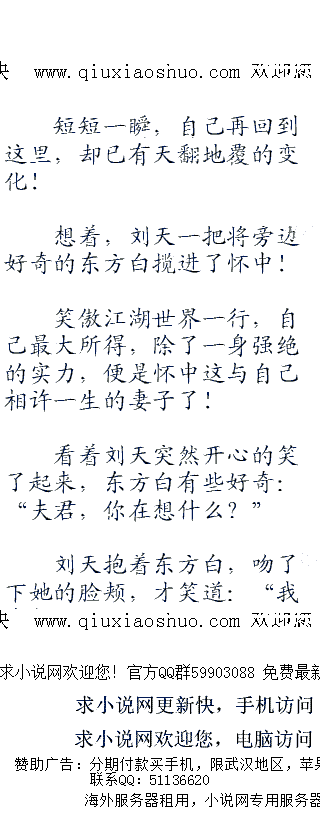 快 www.qiuxiaoshuo.com 欢迎您
短短一瞬，自己再回到
这里，却已有天翻地覆的变
化！
想着，刘天一把将旁边
好奇的东方白揽进了怀中！
笑傲江湖世界一行，自
己最大所得，除了一身强绝
的实力，便是怀中这与自己
相许一生的妻子了！
看着刘天突然开心的笑
了起来，东方白有些好奇：
“夫君，你在想什么？”
刘天抱着东方白，吻了
下她的脸颊，才笑道：“我
www.qiuxiaoshuo.com 欢迎您
求小说网欢迎您！官方QQ群59903088 免费最新
求小说网更新快，手机访问
求小说网欢迎您，电脑访问
赞助广告：分期付款买手机，限武汉地区，苹果
联系QQ：51136620
海外服务器租用，小说网专用服务器